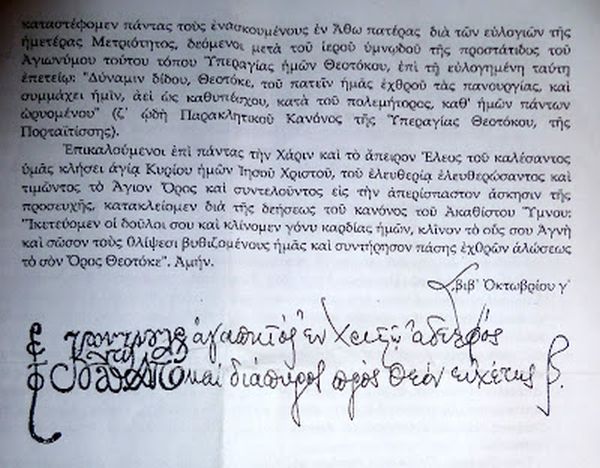 καταστέφομεν πάντας τοὺς ἐνασκουμένους ἐν Ἄθῳ πατέρας διὰ τῶν εὐλογιῶν τῆς
ἡμετέρας Μετριότητος, δεόμενοι μετὰ τοῦ ἱεροῦ ὑμνῳδοῦ τῆς προστάτιδος τοῦ
Ἁγιωνύμου τούτου τόπου Ὑπεραγίας ἡμῶν Θεοτόκου, ἐπὶ τῇ εὐλογημένῃ ταύτῃ
ἐπετείῳ: "Δύναμιν δίδου, Θεοτόκε, τοῦ πατεῖν ἡμᾶς ἐχθροῦ τὰς πανουργίας, καὶ
συμμάχει ἡμῖν, ἀεὶ ὡς καθυπέσχου, κατὰ τοῦ πολεμήτορος, καθ' ἡμῶν πάντων
ὠρυομένου" (ζ´ ᾠδὴ Παρακλητικοῦ Κανόνος τῆς Ὑπεραγίας Θεοτόκου, τῆς
Πορταϊτίσσης).
Ἐπικαλούμενοι ἐπὶ πάντας τὴν Χάριν καὶ τὸ ἄπειρον Ἔλεος τοῦ καλέσαντος
ὑμᾶς κλήσει ἁγίᾳ Κυρίου ἡμῶν Ἰησοῦ Χριστοῦ, τοῦ ἐλευθερίᾳ ἐλευθερώσαντος καὶ
τιμῶντος τὸ Ἅγιον Ὄρος καὶ συντελοῦντος εἰς τὴν ἀπερίσπαστον ἄσκησιν τῆς
προσευχῆς, κατακλείομεν διὰ τῆς δεήσεως τοῦ κανόνος τοῦ Ἀκαθίστου Ὕμνου:
"Ἱκετεύομεν οἱ δοῦλοι σου καὶ κλίνομεν γόνυ καρδίας ἡμῶν, κλῖνον τὸ οὖς σου Ἁγνὴ
καὶ σῶσον τοὺς θλίψεσι βυθιζομένους ἡμᾶς καὶ συντήρησον πάσης ἐχθρῶν ἁλώσεως
τὸ σὸν Ὄρος Θεοτόκε". Ἀμήν.
͵βιβ´ Ὀκτωβρίου γ´
ἀγαπητὸς ἐν Χριστῷ ἀδελφός
καὶ διάπυρος πρὸς Θεὸν εὐχέτης